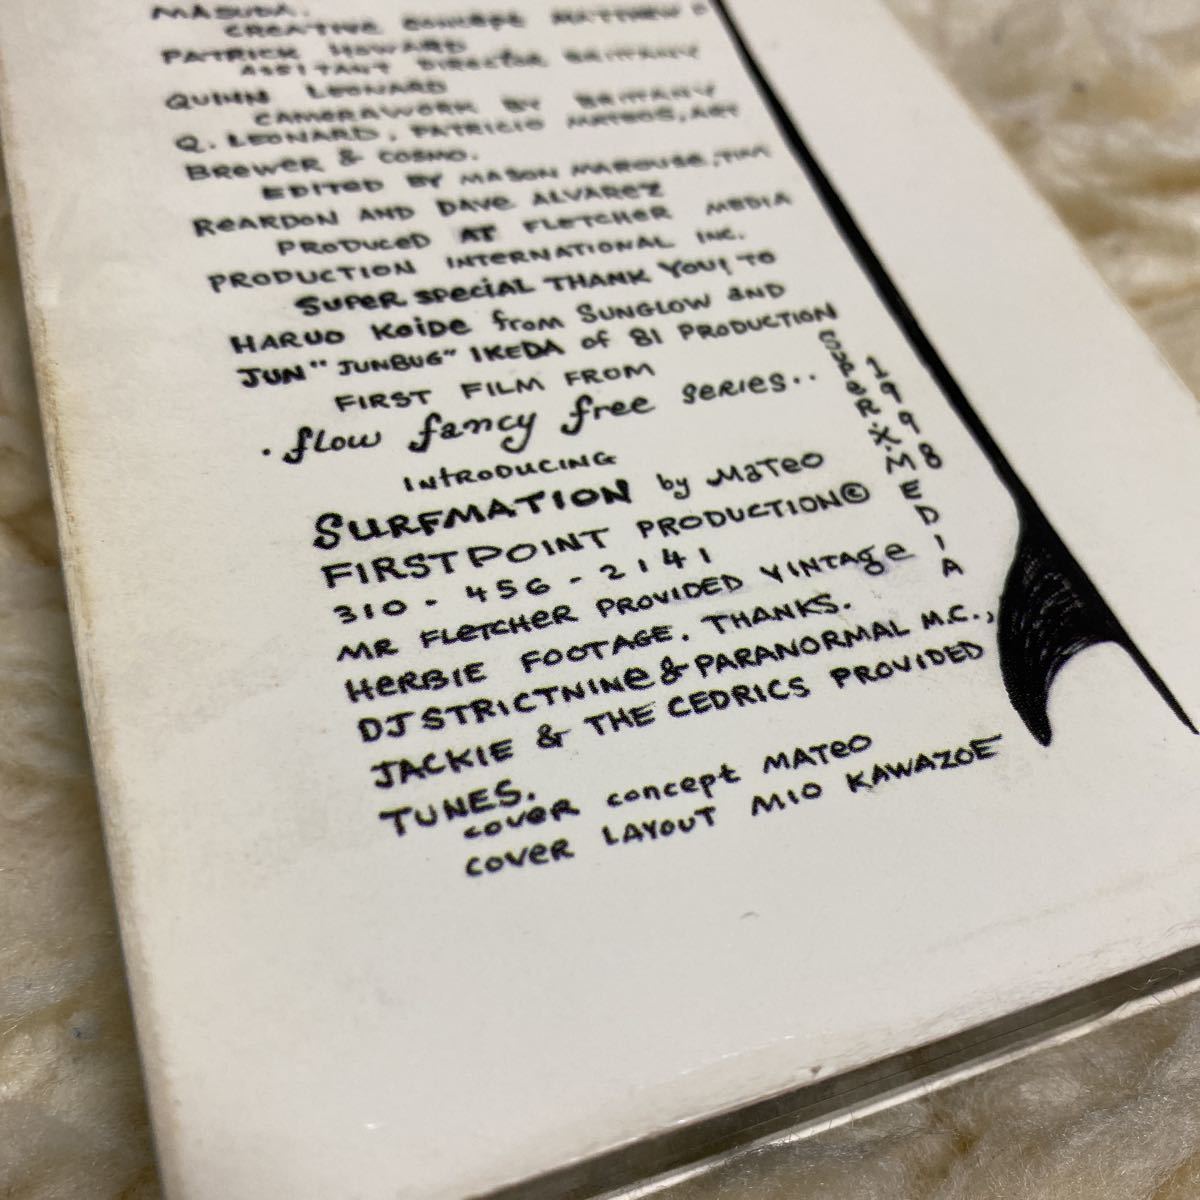 MASUDA.
CREATIVE CONCEPT MATTHEW
PATRICK HOWARD
ASSITANT DIRECTOR BRITTANY
QUINN LEONARD
CAMERAWORK BY BRITTANY
Q. LEONARD, PATRICIO MATEOS, ART
BREWER & COSMO.
EDITED BY MASON MAROUSE, TIM
REARDON AND DAVE ALVAREZ
PRODUCED AT FLETCHER MEDIA
PRODUCTION INTERNATIONAL INC.
SUPER SPECIAL THANK YOU! TO
HARUO KOIDE from SUNGLOW and
JUN "JUNBUG" IKEDA of 81 PRODUCTION
FIRST FILM FROM
. flow fancy free SERIES..
INTRODUCING
SURFMATION by MATEO
FIRSTPOINT PRODUCTION©
310 - 456 - 2141
MR FLETCHER PROVIDED VINTAGE
HERBIE FOOTAGE. THANKS.
DJ STRICTNINE & PARANORMAL M.C.,
JACKIE & THE CEDRICS PROVIDED
TUNES.
COVER CONCEPT MATEO
COVER LAYOUT MIO KAWAZOE
1998
SUPER.X.MEDIA